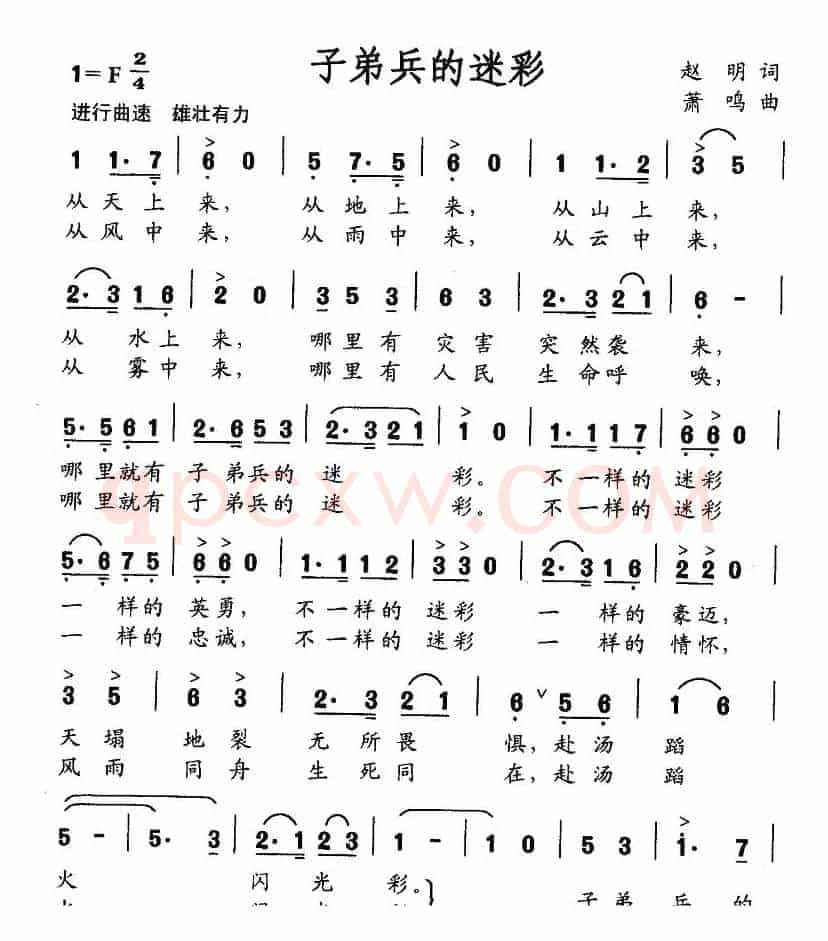 子弟兵的迷彩
1=F 2/4
赵明词
萧鸣曲
进行曲速 雄壮有力
1 1·7 | 6 0 | 5 7·5 | 6 0 | 1 1·2 | 3 5 |
从天上来, 从地上来, 从山上来,
从风中来, 从雨中来, 从云中来,
2·3 1 6 | 2 0 | 3 5 3 | 6 3 | 2·3 2 1 | 6 - |
从水上来, 哪里有灾害突然袭来,
从雾中来, 哪里有人民生命呼唤,
5·5 6 1 | 2·6 5 3 | 2·3 2 1 | 1 0 | 1·1 1 7 | 6 6 0 |
哪里就有子弟兵的迷彩。不一样的迷彩
哪里就有子弟兵的迷彩。不一样的迷彩
5·6 7 5 | 6 6 0 | 1·1 1 2 | 3 3 0 | 2·3 1 6 | 2 2 0 |
一样的英勇, 不一样的迷彩 一样的豪迈,
一样的忠诚, 不一样的迷彩 一样的情怀,
3 5 | 6 3 | 2·3 2 1 | 6 ∨ 5 6 | 1 6 |
天塌地裂无所畏惧, 赴汤蹈
风雨同舟生死同在, 赴汤蹈
5 - | 5· 3 | 2·1 2 3 | 1 - | 1 0 | 5 3 | 1· 7 |
火 闪光彩。
子弟兵的
qpcxw.com